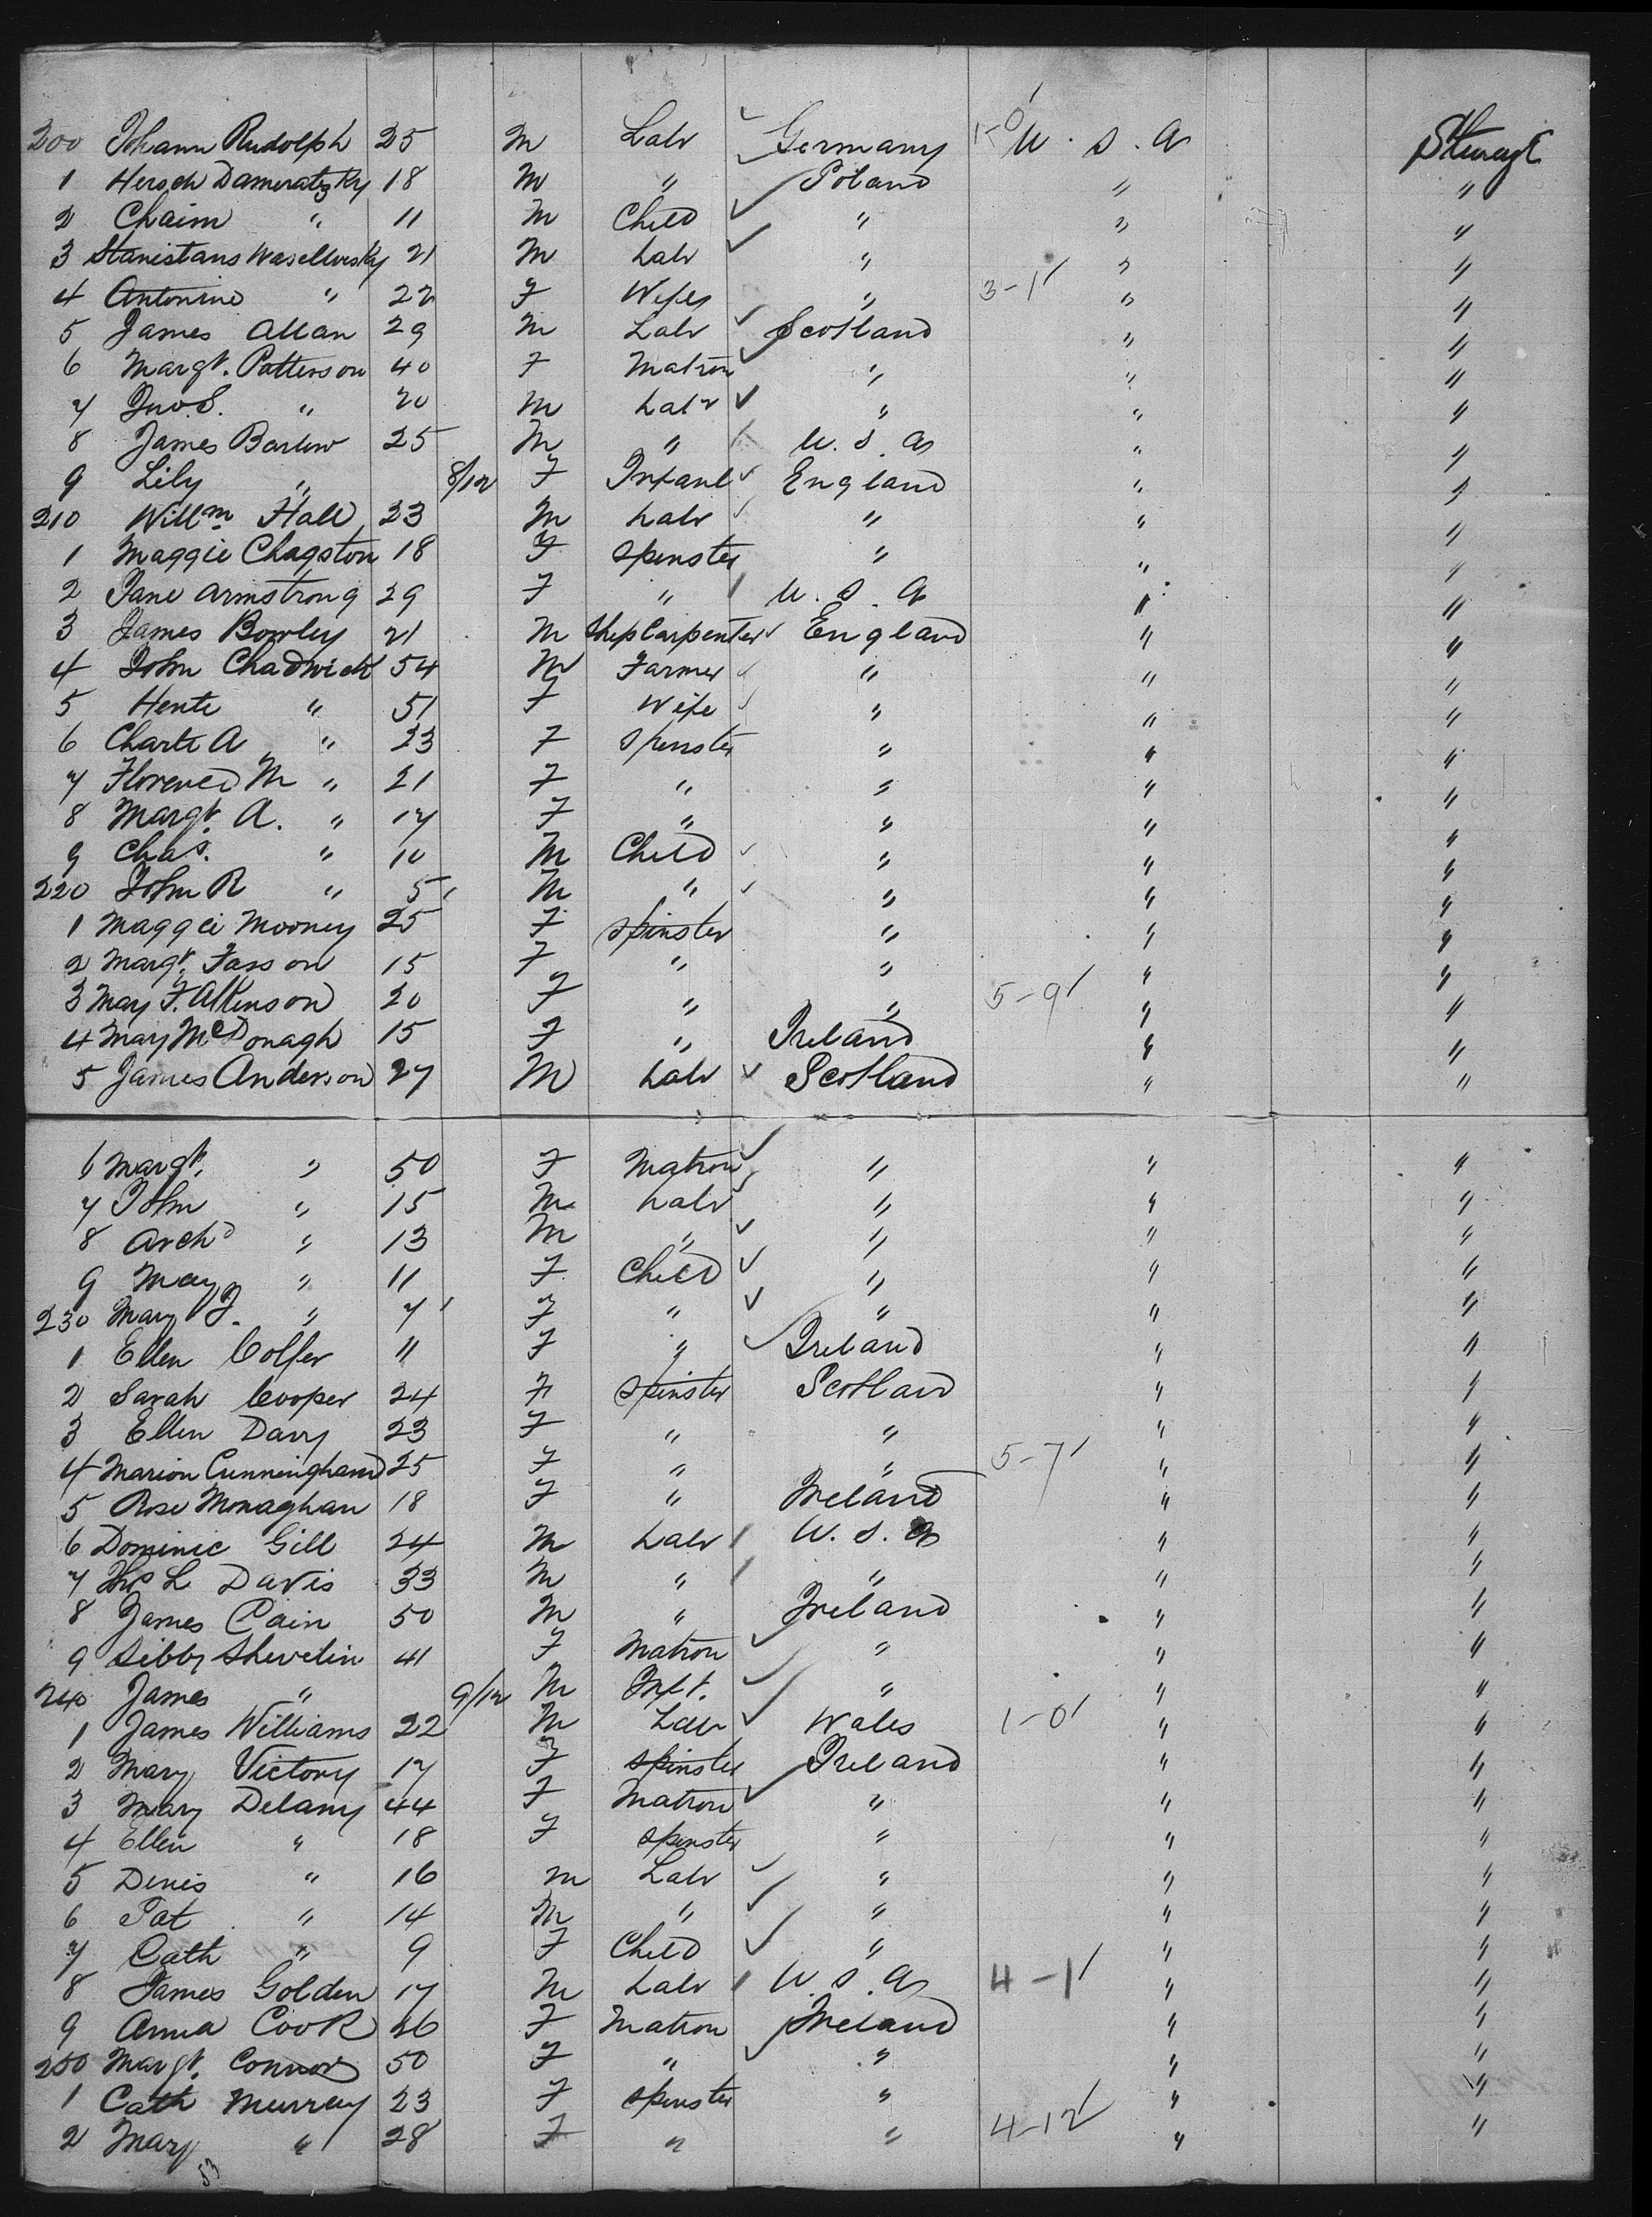 200 Johann Rudolph 25 M Labr Germany 1-0 U.S.A Steerage
1 Hersch Dameratzky 18 M " Poland " "
2 Chaim " 11 M Child " " "
3 Stanistaus 21 M Labr " " "
4 Antonine " 22 F Wife " 3-1 " "
5 James Allan 29 M Labr Scotland " "
6 Margt. Patterson 40 F Matron " " "
7 Jno. S. " 20 M Labr " " "
8 James Barlow 25 M " U.S.A " "
9 Lily " 8/12 F Infant England " "
210 Willm Hall 23 M Labr " " "
1 Maggie Chagston 18 F Spinster " " "
2 Jane Armstrong 29 F " U.S.A " "
3 James Bowley 21 M Ship Carpenter England " "
4 John Chadwick 54 M Farmer " " "
5 " 51 F Wife " " "
6 A " 23 F Spinster " " "
7 Florence M " 21 F " " " "
8 Margt. A. " 17 F " " " "
9 Chas. " 10 M Child " " "
220 John R " 5 M " " " "
1 Maggie Mooney 25 F Spinster " " "
2 Margt. 15 F " " " "
3 May F. Atkinson 20 F " " 5-9 " "
4 Mary McDonagh 15 F " Ireland " "
5 James Anderson 27 M Labr Scotland " "
6 Margt. " 50 F Matron " " "
7 John " 15 M Labr " " "
8 Archd " 13 M " " " "
9 May " 11 F Child " " "
230 Mary J. " 7 F " " " "
1 Ellen Colfer 11 F " Ireland " "
2 Sarah Cooper 24 F Spinster Scotland " "
3 Ellen Davy 23 F " " " "
4 Marion Cunningham 25 F " " 5-7 " "
5 Rose Monaghan 18 F " Ireland " "
6 Dominic Gill 24 M Labr U.S.A " "
7 L Davis 33 M " " " "
8 James Cain 50 M " Ireland " "
9 Sibby Shevelin 41 F Matron " " "
240 James " 9/12 M Inft. " " "
1 James Williams 22 M Labr Wales 1-0 " "
2 Mary Victory 17 F Spinster Ireland " "
3 Mary Delany 44 F Matron " " "
4 Ellen " 18 F Spinster " " "
5 Denis " 16 M Labr " " "
6 Pat " 14 M " " " "
7 Cath " 9 F Child " " "
8 James Golden 17 M Labr U.S.A 4-1 " "
9 Anna Cook 26 F Matron Ireland " "
250 Margt. Connor 50 F " " " "
1 Cath Murray 23 F Spinster " " "
2 Mary " 28 F " " 4-12 " "
53